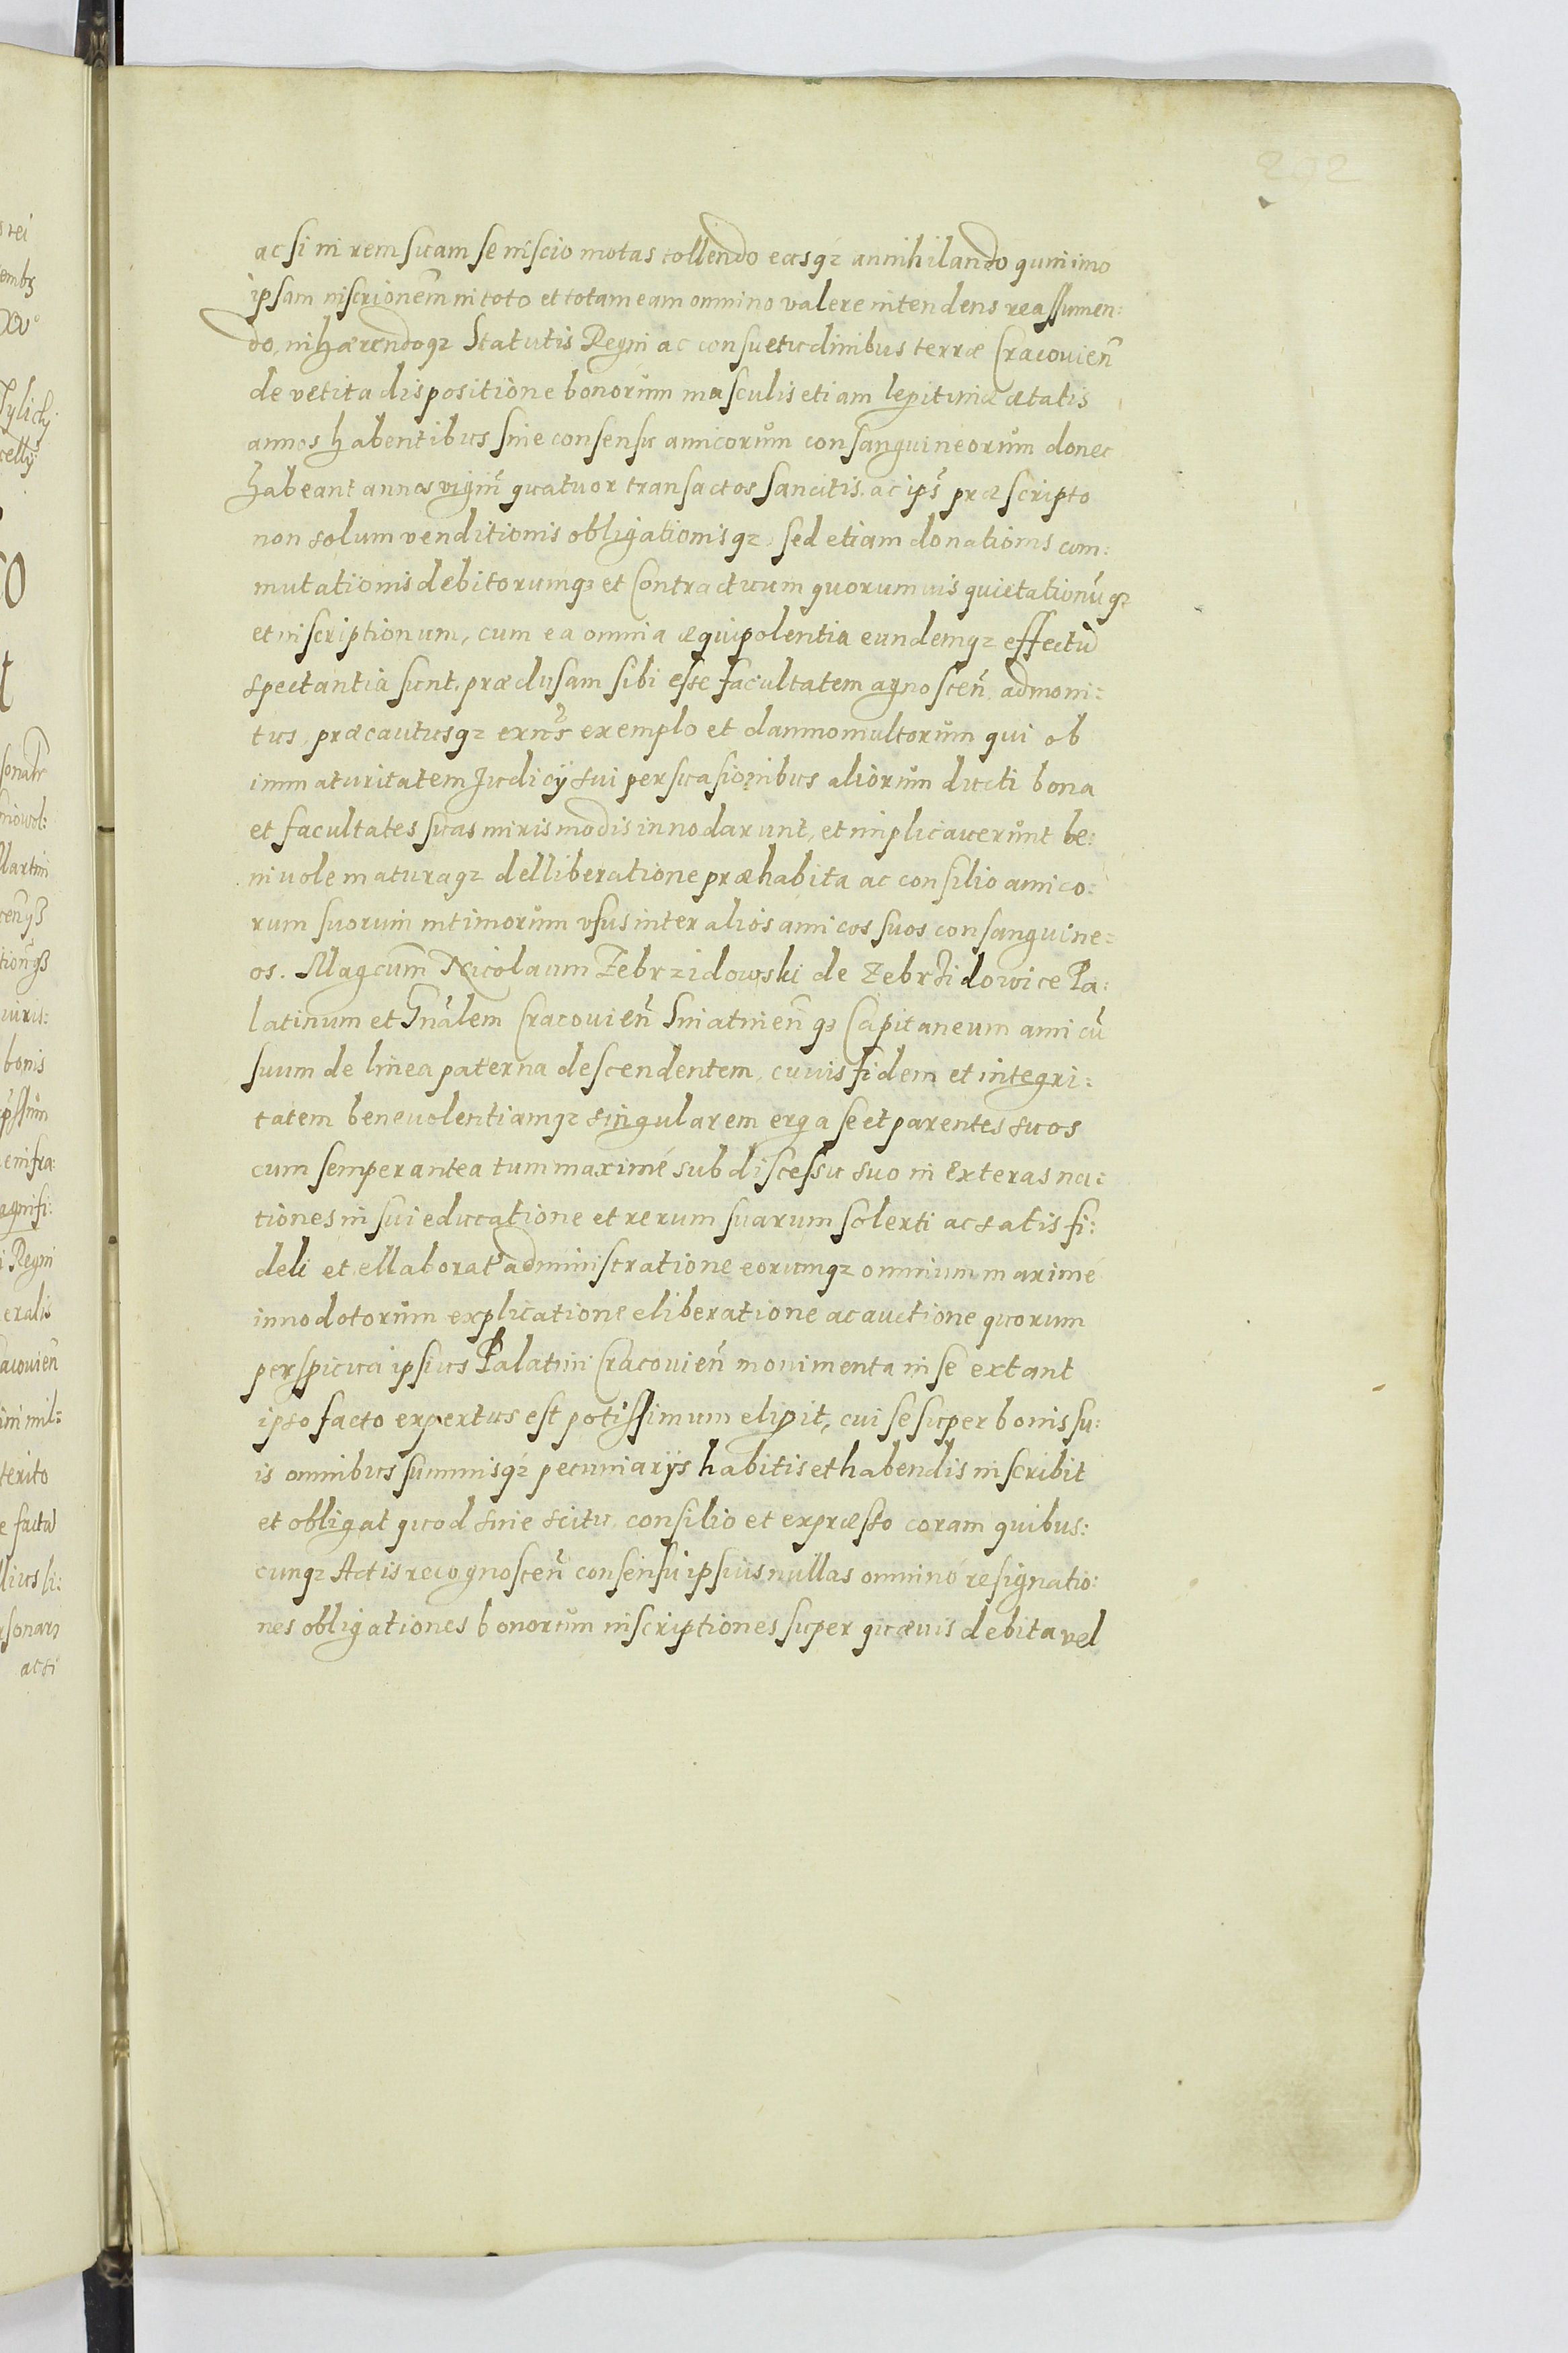 292
ac si in rem suam se inscio motas tollendo easq₃ annihilando quinimo
ipsam inscrionem̃ in toto et totam eam omnino valere intendens reassumen:
do, inhærendoq₃ Statutis Regni ac consuetudinibus terræ Cracovien̄
de vetita dispositione bonorum masculis etiam legitimæ ætatis
annos habentibus sine consensu amicorum consanguineorum donec
habeant annos vigin̄ quatuor transactos sancitis. ac ips̄ præscripto
non solum venditionis obligationisq₃, sed etiam donationis com:
mutationis debitorumq₃ et Contractuum quorumuis quietationūq₃
et inscriptionum, cum ea omnia æquipolentia eundemq₃ effectū
spectantia sunt, præclusam sibi esse facultatem agnoscen̄ admoni:
tus, præcautusq₃ exemplo et damno multorum qui ob
immaturitatem Judicÿ sui persuasionibus aliorum ducti bona
et facultates suas miris modis innodarunt, et implicauerunt be:
niuole maturaq₃ delliberatione præhabita ac consilio amico:
rum suorum intimorum vsus inter alios amicos suos consanguine:
os. Magcum̃ Nicolaum Zebrzidowski de Zebrzidowice Pa:
latinum et Gn̄alem Cracouien̄ Sniatinen̄q₃ Capitaneum amicū
suum de linea paterna descendentem, cuius fidem et integri:
tatem beneuolentiamq₃ singularem erga se et parentes suos
cum semper antea tum maximé sub discessu suo in Exteras na:
tiones in sui educatione et rerum suarum solerti ac satis fi:
deli et ellaborat administratione eorumq₃ omnium maxime
innodotorum explicatione eliberatione ac auctione quorum
perspicua ipsius Palatini Cracouien̄ monimenta in se extant
ipso facto expertus est potissimum eligit, cui se super bonis su:
is omnibus summisq₃ pecuniarÿs habitis et habendis inscribit
et obligat quod sine scitu consilio et expræsso coram quibus:
cunq₃ Actis recognoscen̄ consensu ipsius nullas omninó resignatio:
nes obligationes bonorum inscriptiones super quæuis debita vel